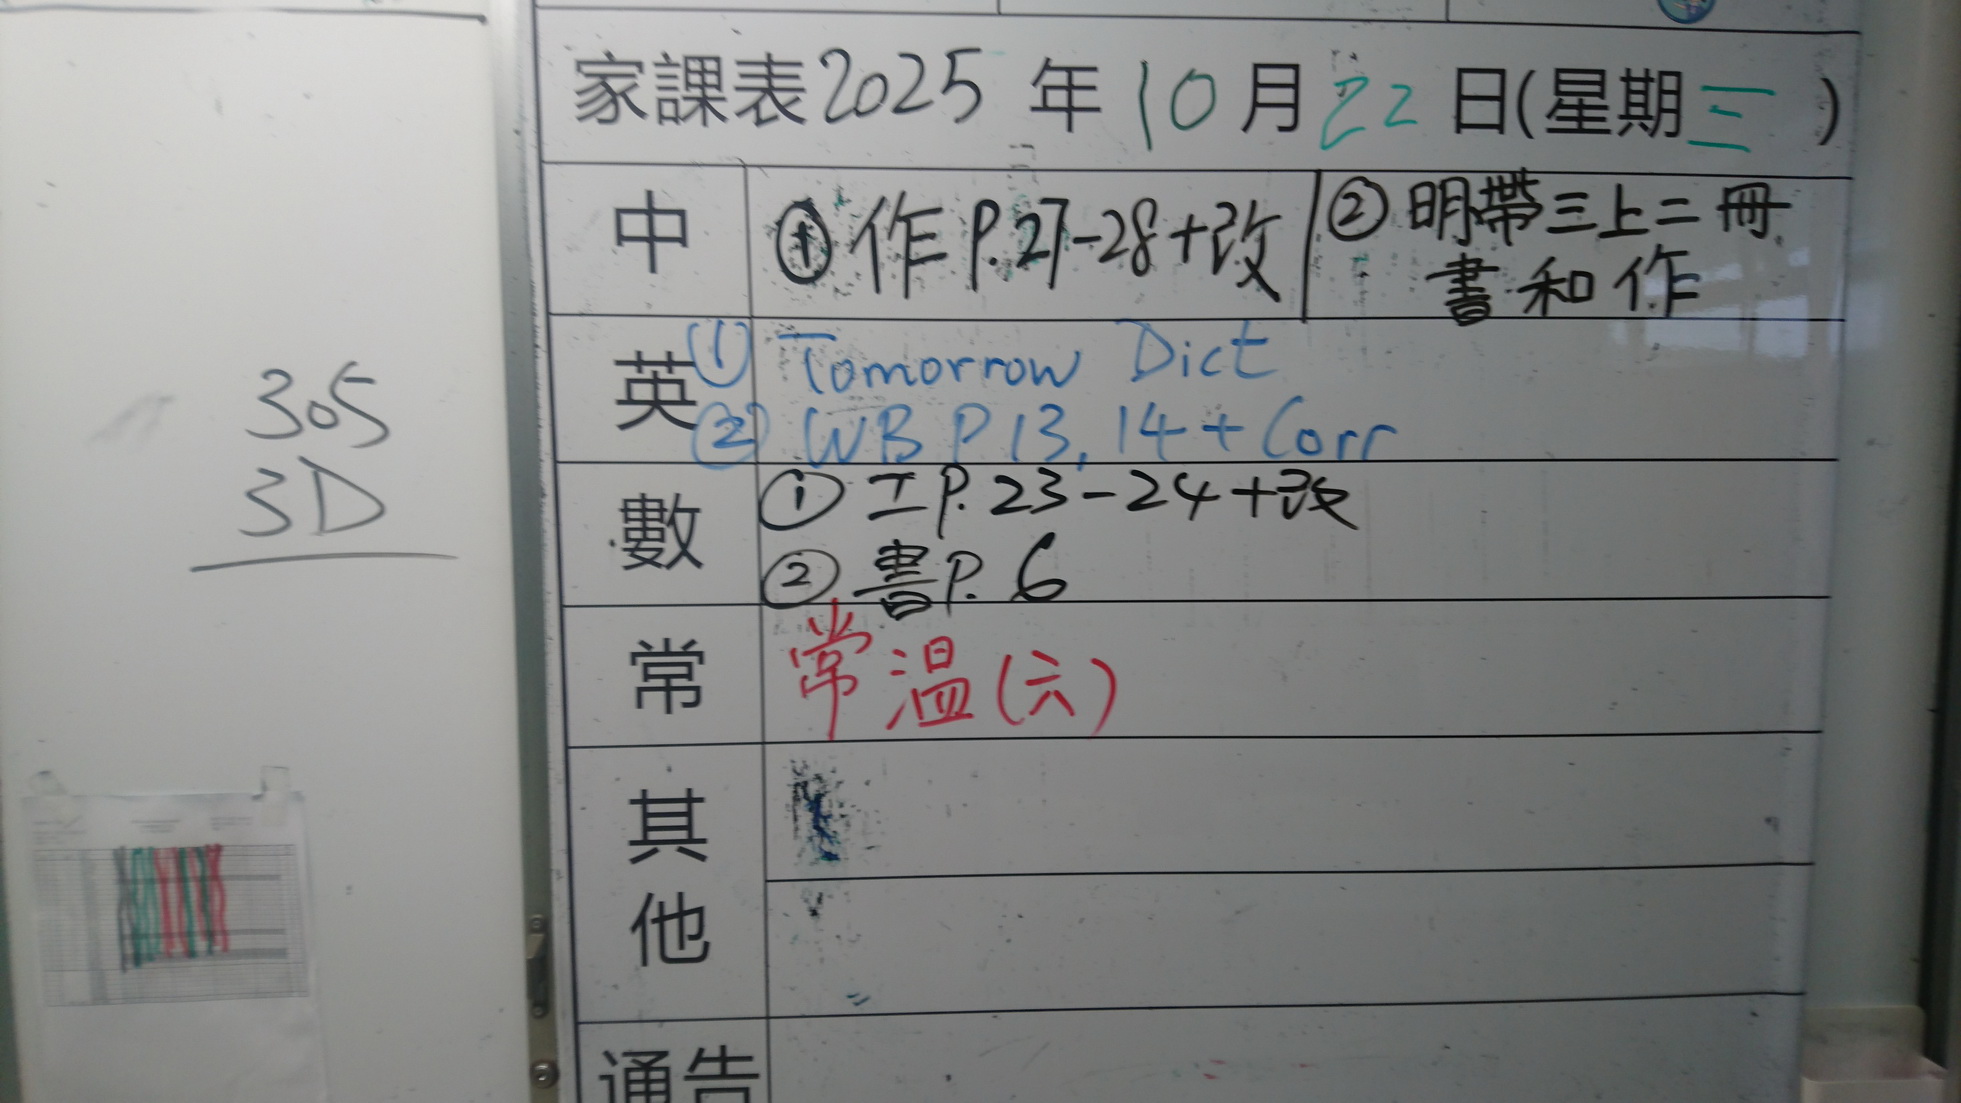 家課表2025年10月22日(星期三)
中
① 作 P.27-28+改
② 明帶三上二冊
書和作
英
① Tomorrow Dict
② WB P 13, 14 + Corr
數
① 工 P. 23-24+改
② 書 P. 6
常
常溫(六)
其他
通告
305
3D